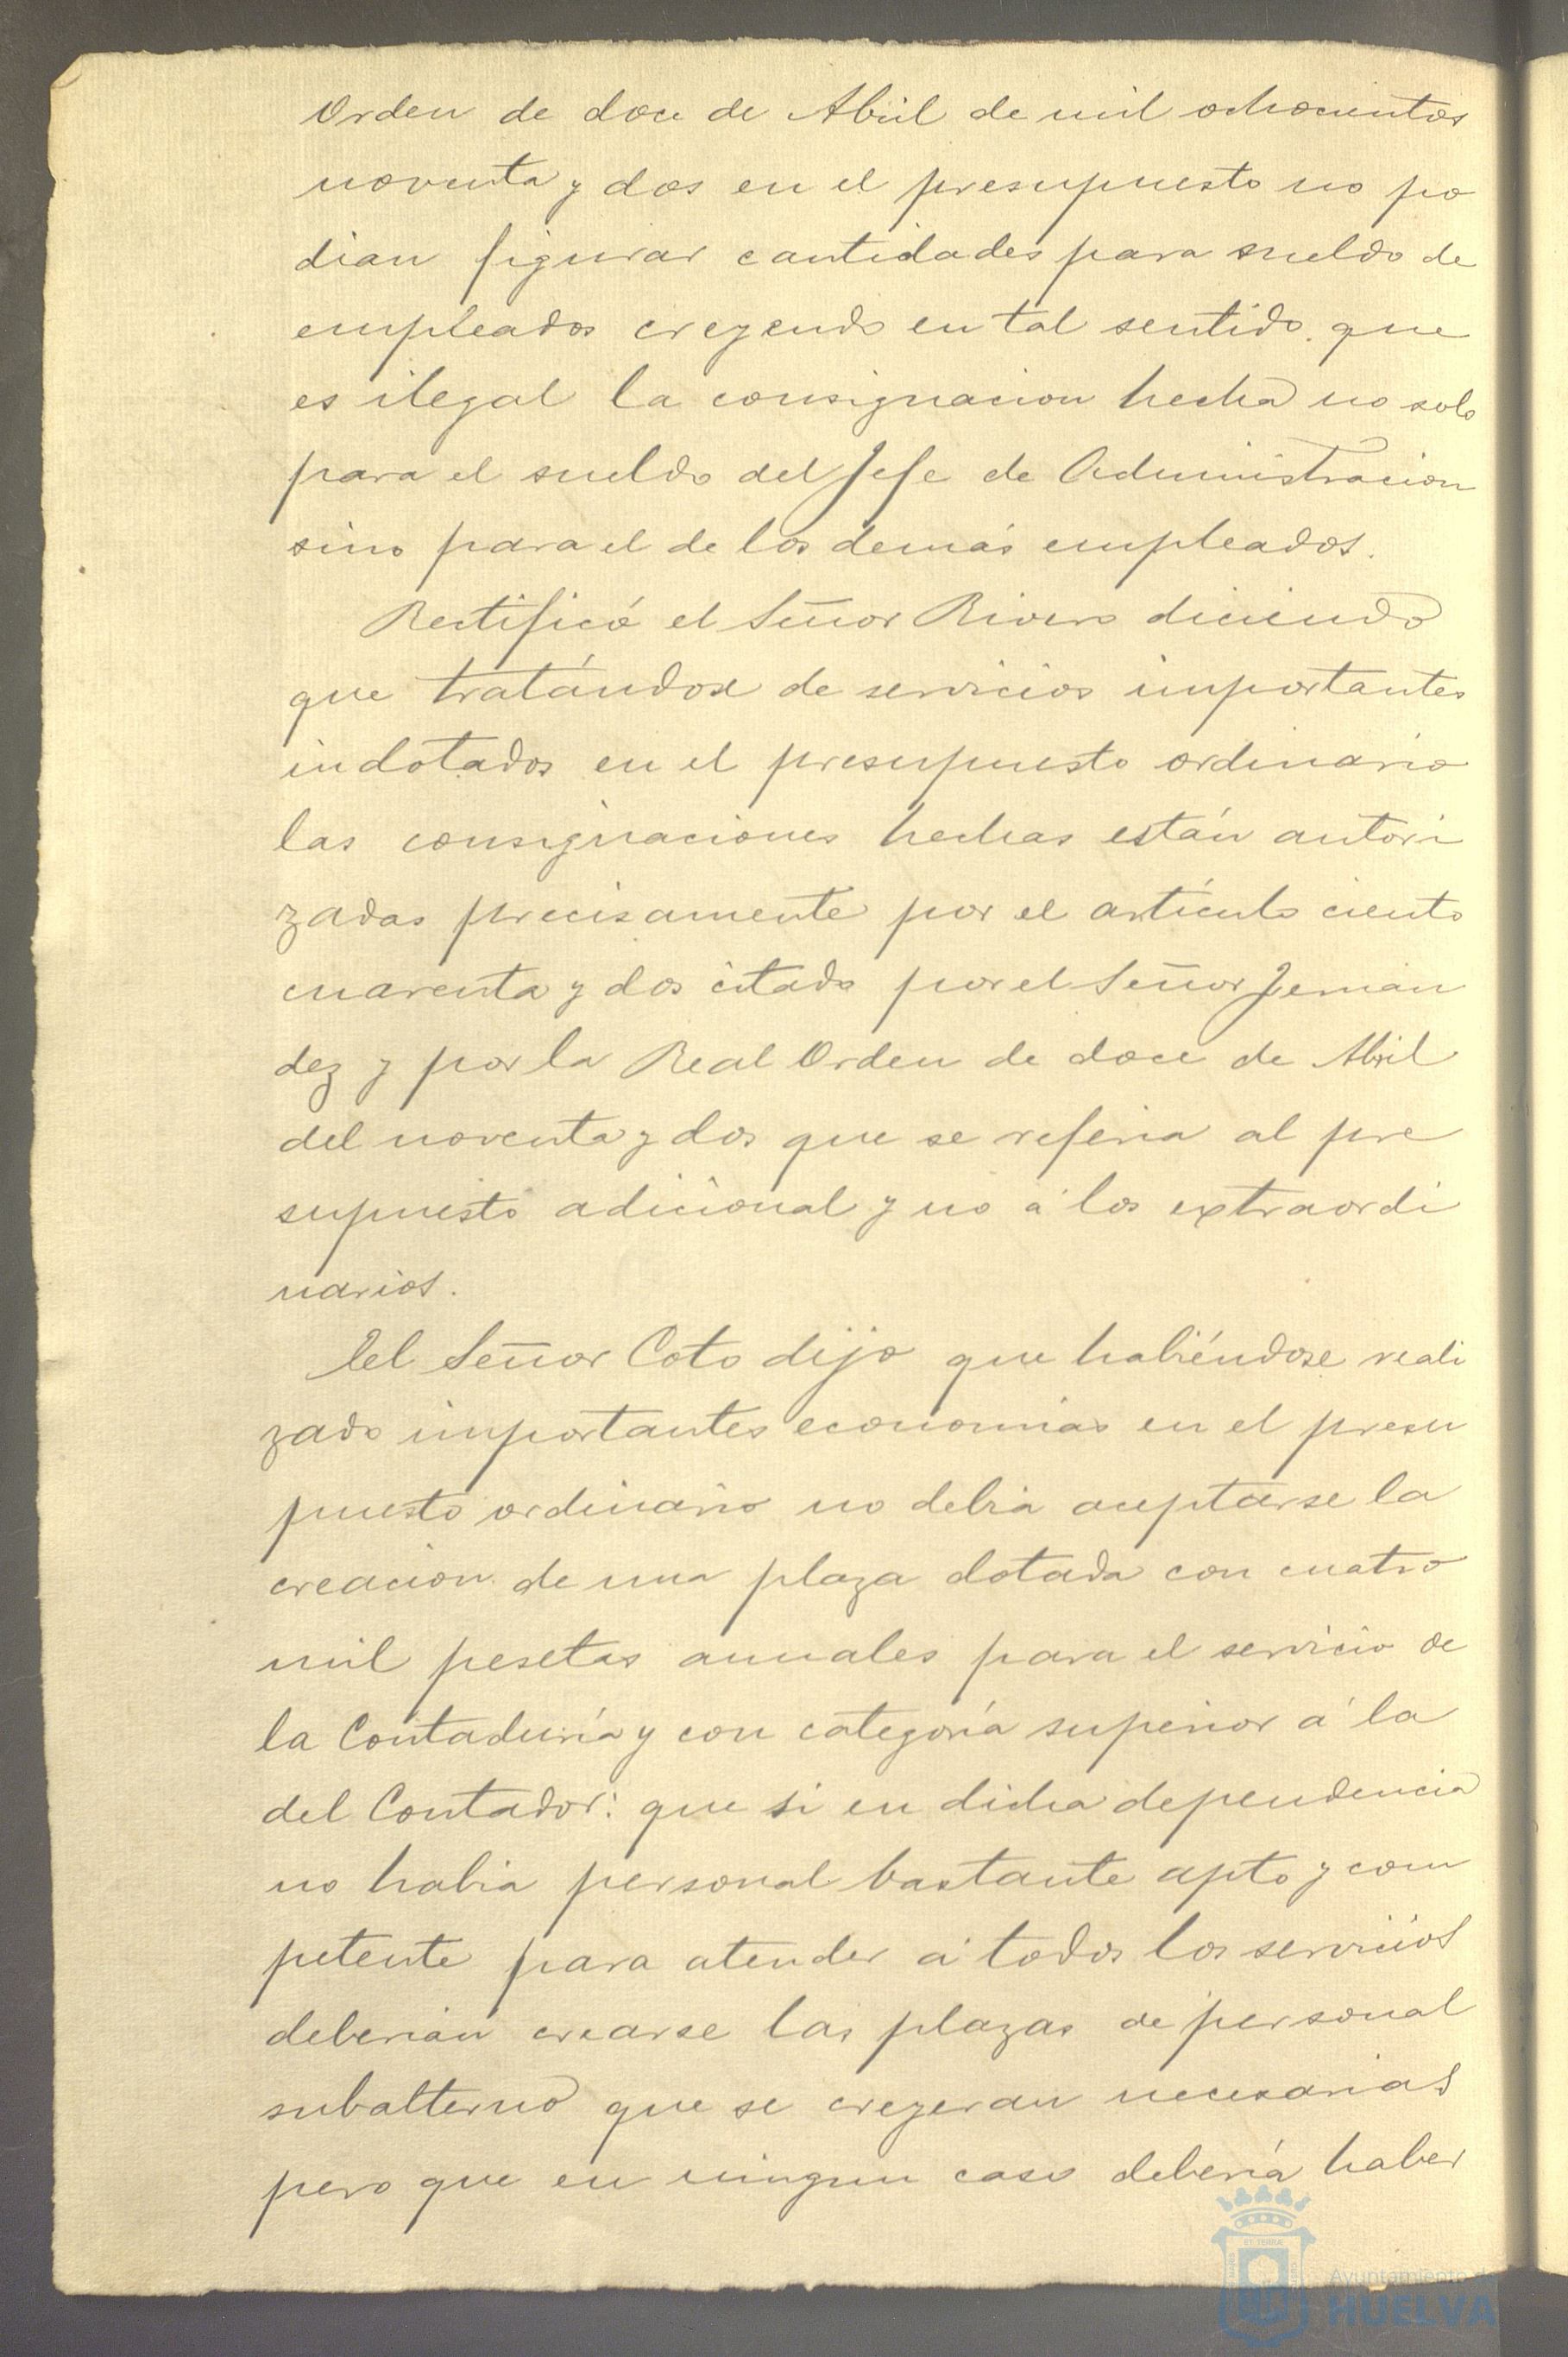 Orden de doce de Abril de mil ochocientos
noventa y dos en el presupuesto no po
dian figurar cantidades para sueldo de
empleados creyendo en tal sentido que
es ilegal la consignacion hecha no solo
para el sueldo del Jefe de Administracion
sino para el de los demás empleados.
Rectificó el Señor Rivero diciendo
que tratándose de servicios importantes
indotados en el presupuesto ordinario
las consignaciones hechas están autori
zadas precisamente por el artículo ciento
cuarenta y dos citado por el Señor Fernan
dez y por la Real Orden de doce de Abril
del noventa y dos que se referia al pre
supuesto adicional y no á los extraordi
narios.
El Señor Coto dijo que habiéndose reali
zado importantes economias en el presu
puesto ordinario no debia aceptarse la
creacion de una plaza dotada con cuatro
mil pesetas anuales para el servicio de
la Contaduría y con categoría superior á la
del Contador: que si en dicha dependencia
no habia personal bastante apto y com
petente para atender á todos los servicios
deberian crearse las plazas de personal
subalterno que se creyeran necesarias
pero que en ningun caso debería haber
Ayuntamiento de
HUELVA